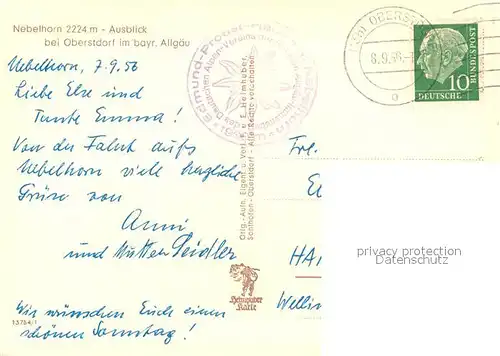 Nebelhorn 2224 m - Ausblick
bei Oberstdorf im bayr. Allgäu
Nebelhorn, 7.9.56
Liebe Else und
Tante Emma!
Von der Fahrt aufs
Nebelhorn viele herzliche
Grüße von
Anni
und Mutter Seidler
Wir wünschen Euch einen
schönen Sonntag!
13754/1
Edmund-Probst-
des Deutschen Alpen-Vereins
Orig.-Aufn. Eigent. u. Verl. F. u. E. Heimhuber,
Sonthofen-Oberstdorf - Alle Rechte vorbehalten
Heimhuber
Karte
OBERST
8.9.56
DEUTSCHE
BUNDESPOST
10
Frl.
HA
Wellin
privacy protection
Datenschutz